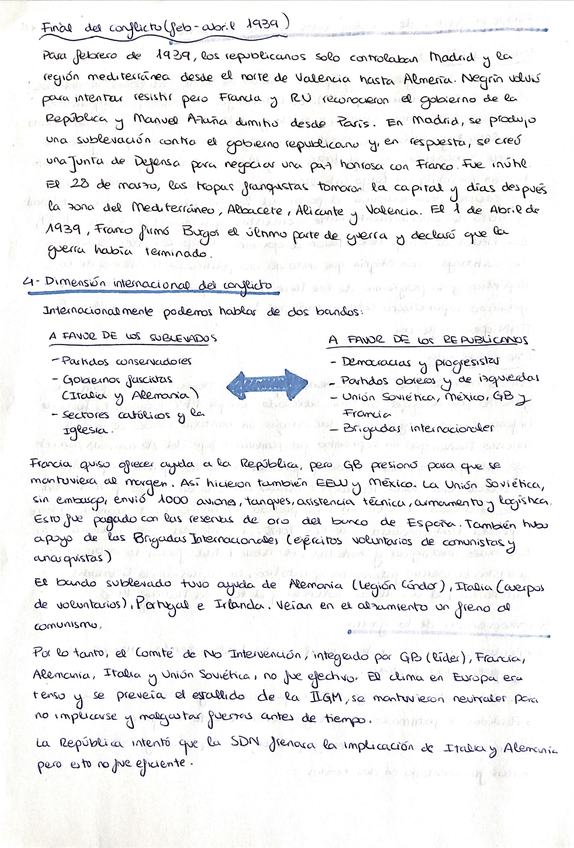 Final del conflicto (feb-abril 1939)
Para febrero de 1939, los republicanos solo controlaban Madrid y la
región mediterránea desde el norte de Valencia hasta Almería. Negrín volvió
para intentar resistir pero Francia y RU reconocieron el gobierno de la
República y Manuel Azaña dimitió desde París. En Madrid, se produjo
una sublevación contra el gobierno republicano y, en respuesta, se creó
una Junta de Defensa para negociar una paz honrosa con Franco. Fue inútil.
El 28 de marzo, las tropas franquistas tomaron la capital y días después
la zona del Mediterráneo, Albacete, Alicante y Valencia. El 1 de Abril de
1939, Franco firmó Burgos el último parte de guerra y declaró que la
guerra había terminado.
4- Dimensión internacional del conflicto
Internacionalmente podemos hablar de dos bandos:
A FAVOR DE LOS SUBLEVADOS
- Partidos conservadores
- Gobiernos fascistas
(Italia y Alemania)
- Sectores católicos y la
Iglesia.
A FAVOR DE LOS REPUBLICANOS
- Democracias y progresistas
- Partidos obreros y de izquierdas
- Unión Soviética, México, GB y
Francia
- Brigadas internacionales
Francia quiso ofrecer ayuda a la República, pero GB presionó para que se
mantuviera al margen. Así hicieron también EEUU y México. La Unión Soviética,
sin embargo, envió 1000 aviones, tanques, asistencia técnica, armamento y logística.
Esto fue pagado con las reservas de oro del banco de España. También hubo
apoyo de las Brigadas Internacionales (ejércitos voluntarios de comunistas y
anarquistas)
El bando sublevado tuvo ayuda de Alemania (Legión Cóndor), Italia (cuerpos
de voluntarios), Portugal e Irlanda. Veían en el alzamiento un freno al
comunismo.
Por lo tanto, el Comité de No Intervención, integrado por GB (líder), Francia,
Alemania, Italia y Unión Soviética, no fue efectivo. El clima en Europa era
tenso y se preveía el estallido de la IIGM, se mantuvieron neutrales para
no implicarse y malgastar fuerzas antes de tiempo.
La República intentó que la SDN frenara la implicación de Italia y Alemania
pero esto no fue eficiente.